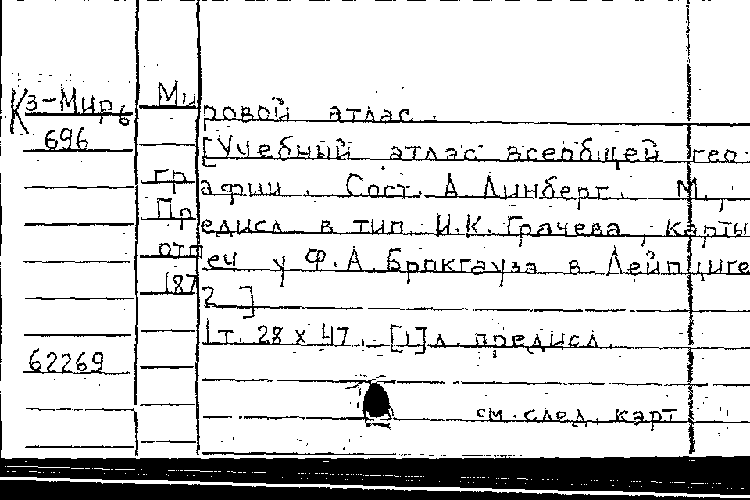 Кз-Мир 6
696
Мировой атлас.
[Учебный атлас всеобщей гео-
графии. Сост. А. Линберг. М.,
Предисл. в тип. И.К. Грачева, карты
отпеч. у Ф.А. Брокгауза в Лейпциге
1872]
1т. 28 х 47. [1] л. предисл.
62269
см. след. карт